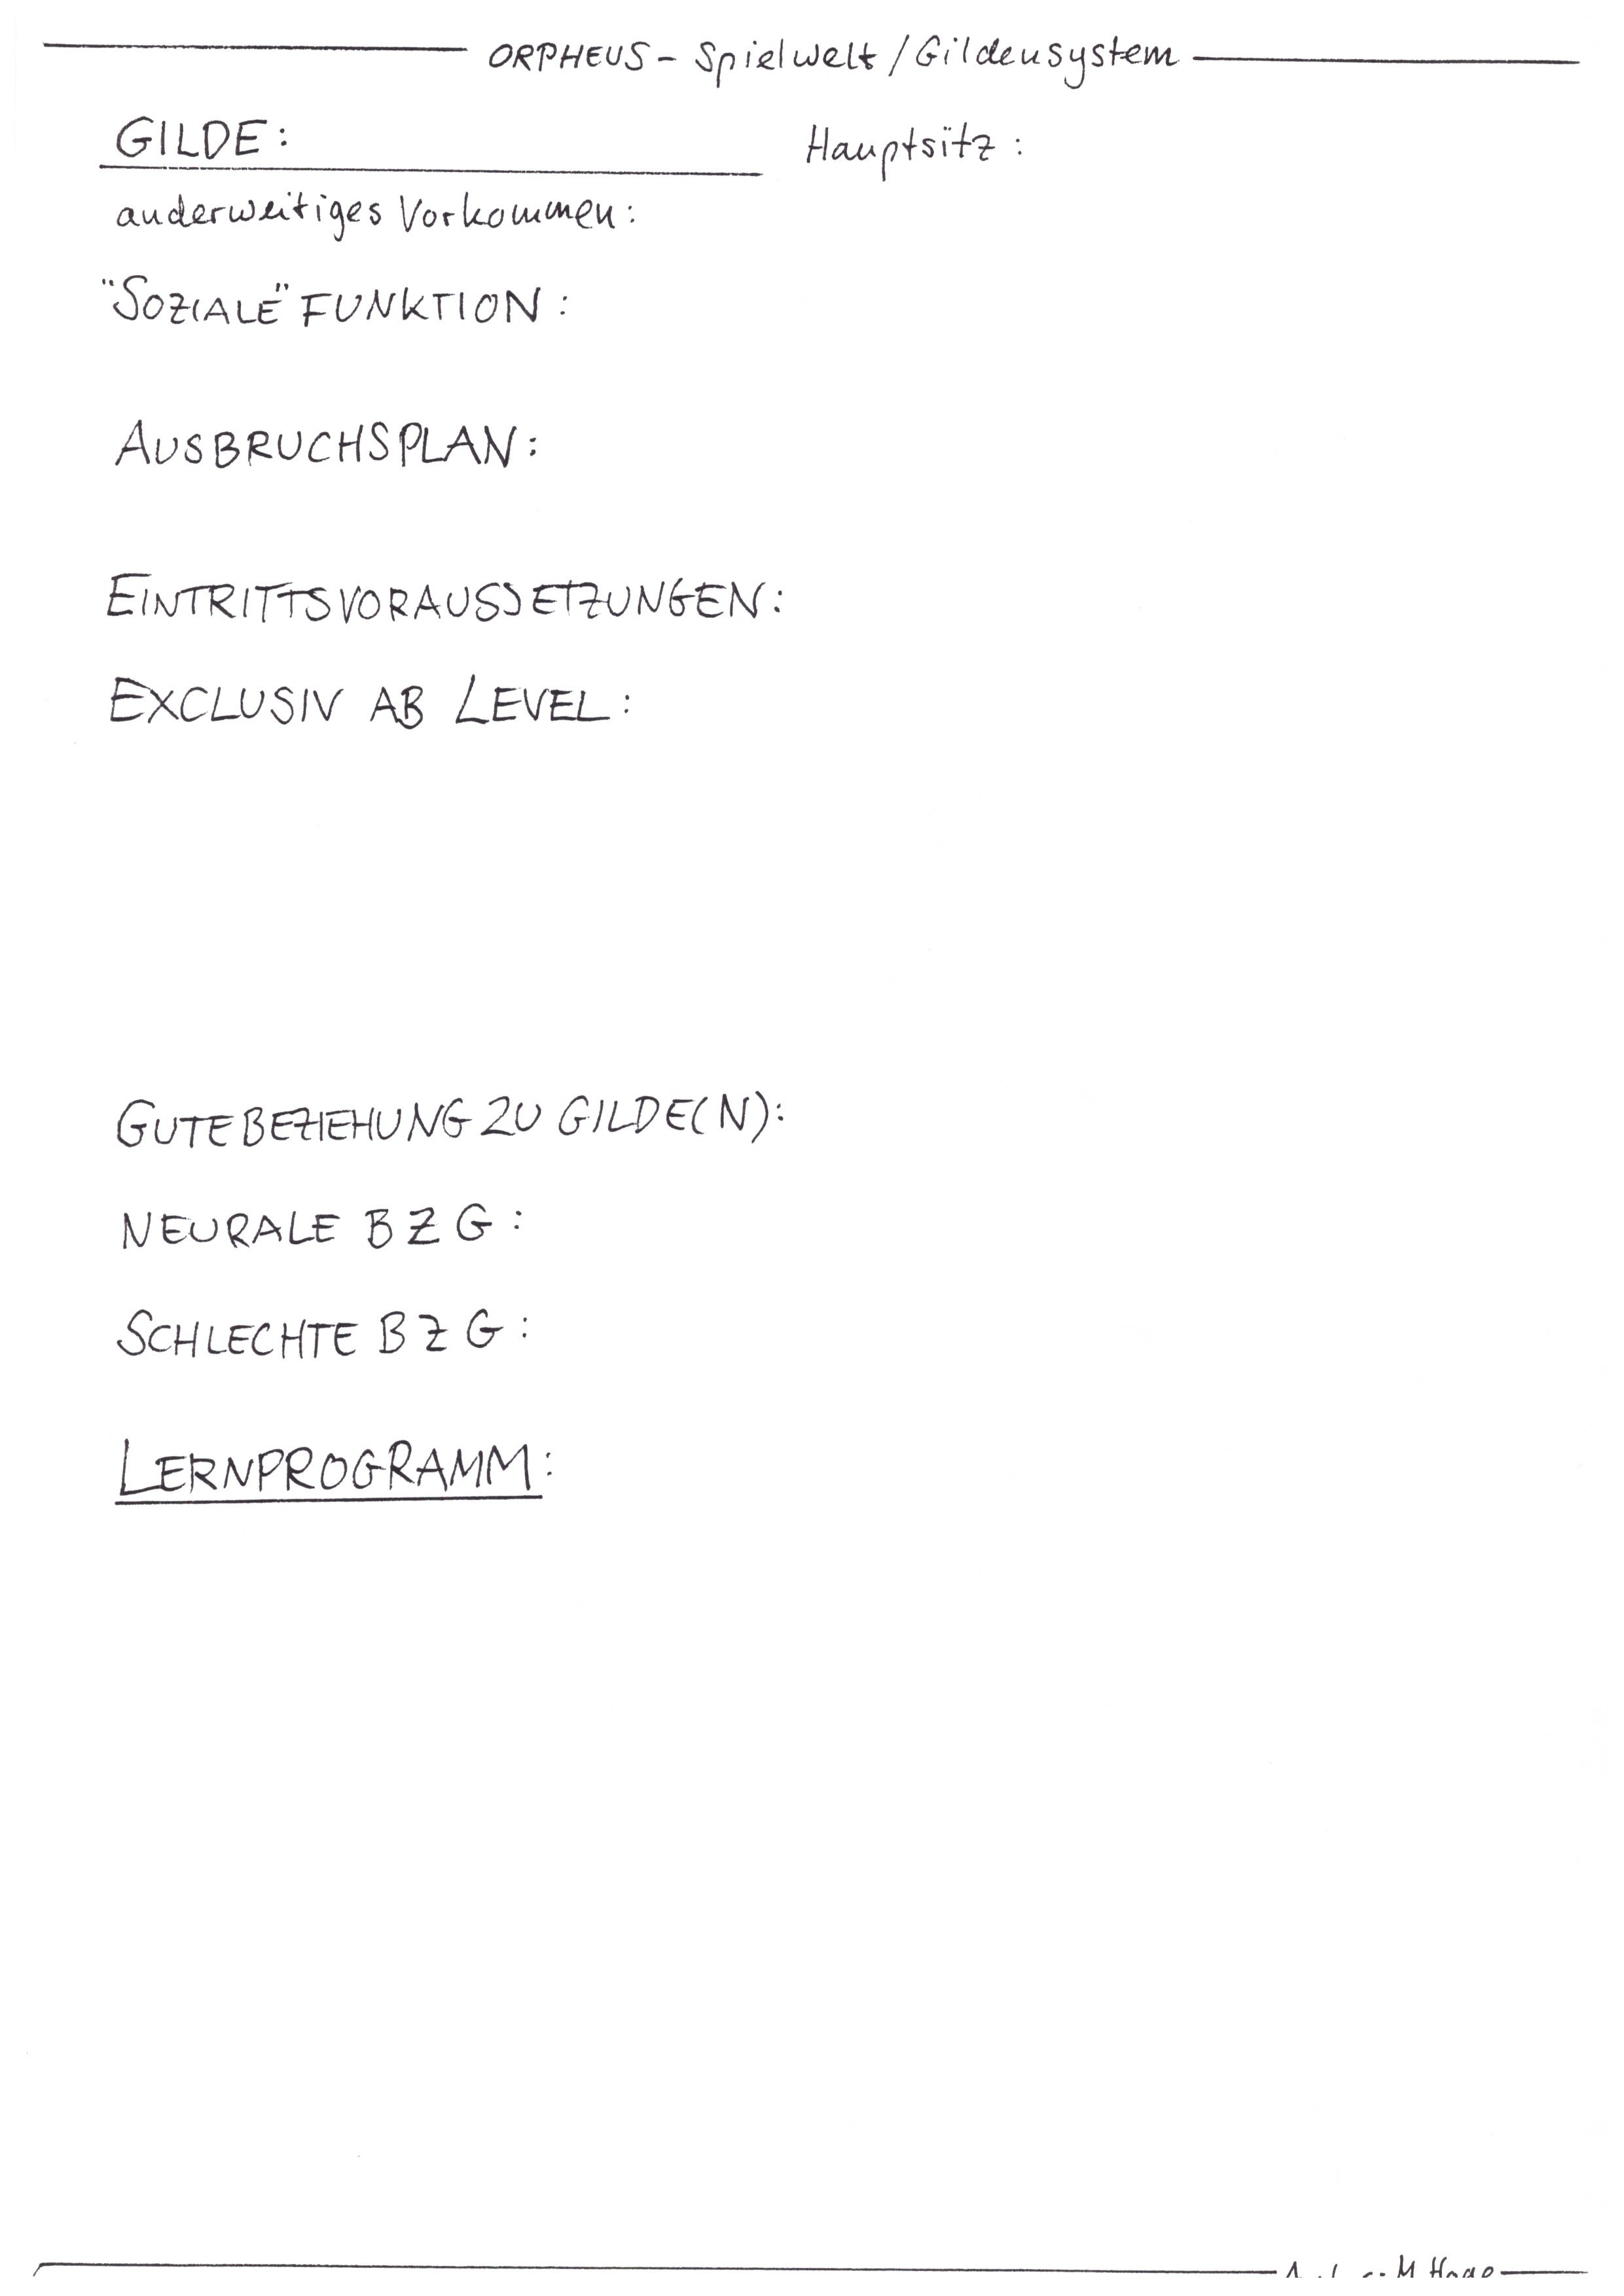 ORPHEUS - Spielwelt / Gildensystem
GILDE: Hauptsitz :
anderweitiges Vorkommen:
"SOZIALE" FUNKTION :
AUSBRUCHSPLAN:
EINTRITTSVORAUSSETZUNGEN:
EXCLUSIV AB LEVEL:
GUTE BEZIEHUNG ZU GILDE(N):
NEURALE B Z G :
SCHLECHTE B Z G :
LERNPROGRAMM: